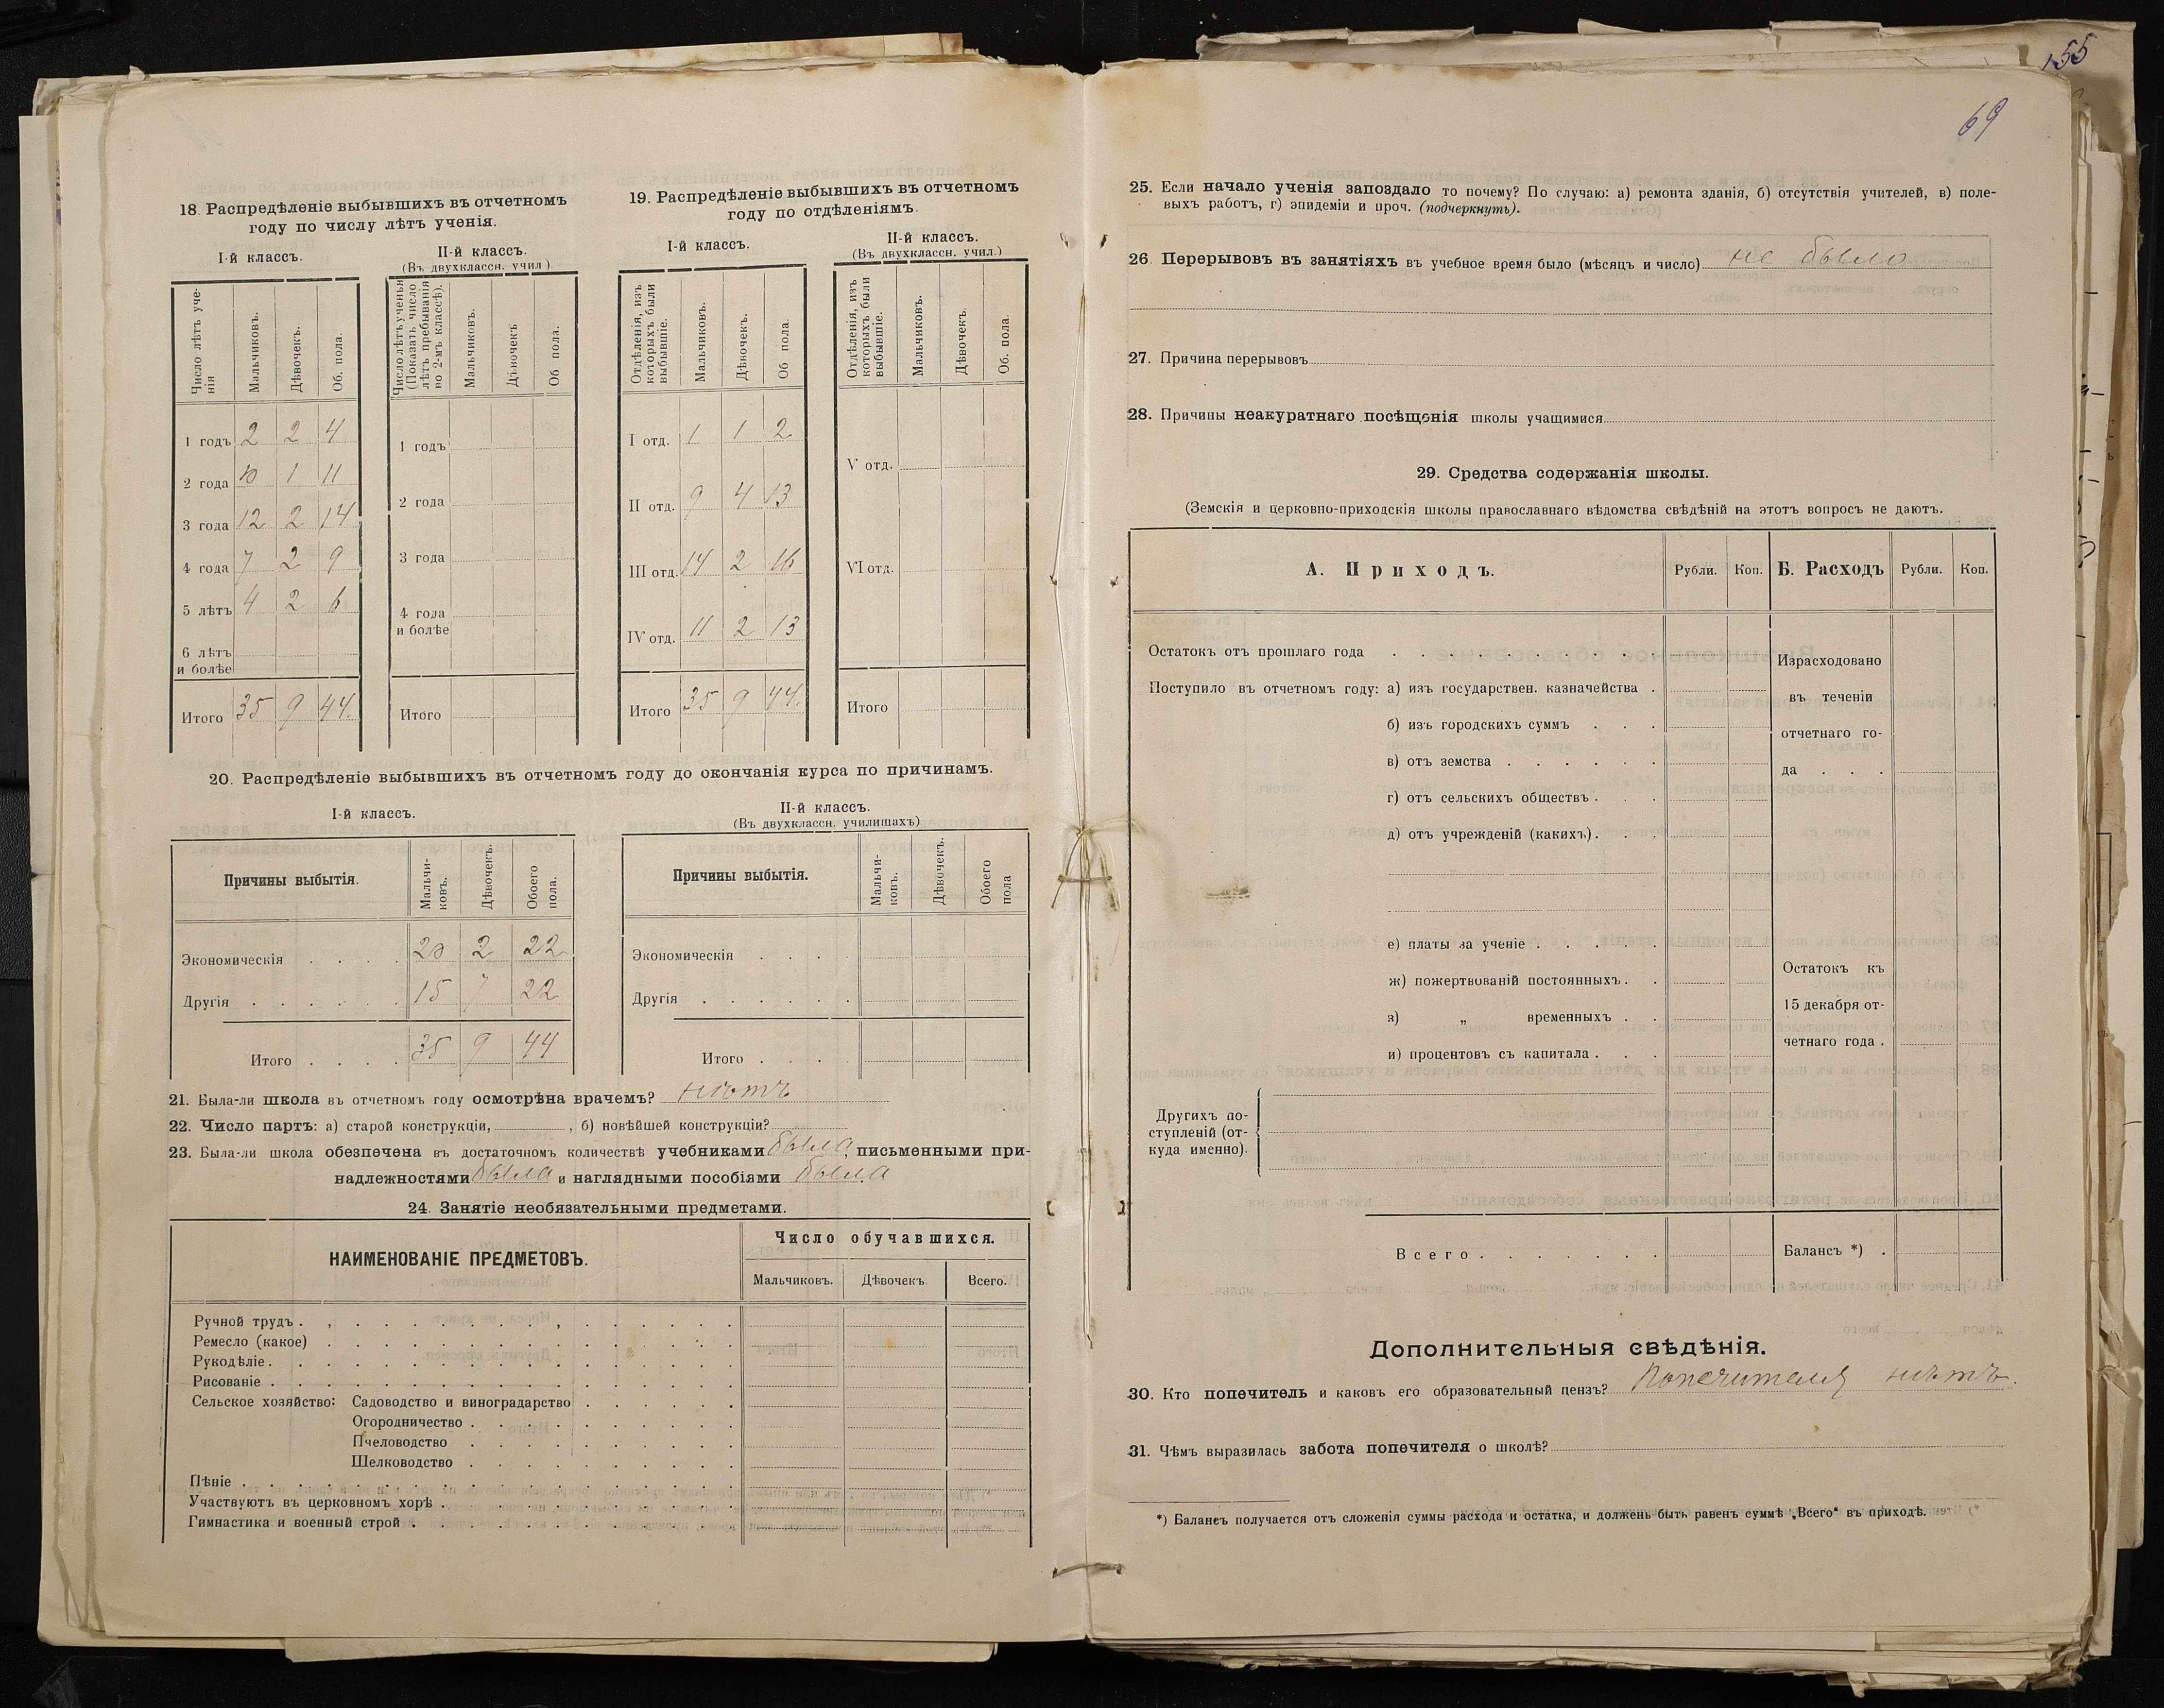 155
69
18. Распредѣленіе выбывшихъ въ отчетномъ
году по числу лѣтъ ученія.
I-й классъ.
II-й классъ.
(Въ двухклассн. учил.)
Число лѣтъ уче-
нія
Мальчиковъ.
Дѣвочекъ.
Об. пола.
Число лѣтъ ученья
(Показать число
лѣтъ пребыванія
во 2-мъ классѣ).
Мальчиковъ.
Дѣвочекъ
Об пола.
1 годъ 2 2 4
2 года 10 1 11
3 года 12 2 14
4 года 7 2 9
5 лѣтъ 4 2 6
6 лѣтъ
и болѣе
Итого 35 9 44.
1 годъ
2 года
3 года
4 года
и болѣе
Итого
19. Распредѣленіе выбывшихъ въ отчетномъ
году по отдѣленіямъ.
I-й классъ.
II-й классъ.
(Въ двухклассн. учил.)
Отдѣленія, изъ
которыхъ были
выбывшіе.
Мальчиковъ.
Дѣвочекъ.
Об пола
Отдѣленія, изъ
которыхъ были
выбывшіе.
Мальчиковъ.
Дѣвочекъ.
Об. пола.
I отд. 1 1 2
II отд. 9 4 13
III отд. 14 2 16
IV отд. 11 2 13
Итого 35 9 44.
V отд.
VI отд.
Итого
20. Распредѣленіе выбывшихъ въ отчетномъ году до окончанія курса по причинамъ.
I-й классъ.
II-й классъ.
(Въ двухклассн. училищахъ)
Причины выбытія.
Мальчи-
ковъ.
Дѣвочекъ.
Обоего
пола.
Экономическія . . . . 20 2 22
Другія . . . . . . 15 7 22
Итого . . . . 35 9 44
Причины выбытія.
Мальчи-
ковъ.
Дѣвочекъ.
Обоего
пола
Экономическія . . . .
Другія . . . . . .
Итого . . . .
21. Была-ли школа въ отчетномъ году осмотрѣна врачемъ? нѣтъ
22. Число партъ: а) старой конструкціи, , б) новѣйшей конструкціи?
23. Была-ли школа обезпечена въ достаточномъ количествѣ учебниками была, письменными при-
надлежностями была и наглядными пособіями была
24. Занятіе необязательными предметами.
НАИМЕНОВАНІЕ ПРЕДМЕТОВЪ.
Число обучавшихся.
Мальчиковъ. Дѣвочекъ Всего.
Ручной трудъ
Ремесло (какое)
Рукодѣліе
Рисованіе
Сельское хозяйство: Садоводство и виноградарство
Огородничество
Пчеловодство
Шелководство
Пѣніе
Участвуютъ въ церковномъ хорѣ
Гимнастика и военный строй
25. Если начало ученія запоздало то почему? По случаю: а) ремонта зданія, б) отсутствія учителей, в) поле-
выхъ работъ, г) эпидеміи и проч. (подчеркнуть).
26. Перерывовъ въ занятіяхъ въ учебное время было (мѣсяцъ и число) не было
27. Причина перерывовъ
28. Причины неакуратнаго посѣщенія школы учащимися
29. Средства содержанія школы.
(Земскія и церковно-приходскія школы православнаго вѣдомства свѣдѣній на этотъ вопросъ не даютъ.
А. Приходъ. Рубли. Коп. Б. Расходъ Рубли. Коп.
Остатокъ отъ прошлаго года
Поступило въ отчетномъ году: а) изъ государствен. казначейства
б) изъ городскихъ суммъ
в) отъ земства
г) отъ сельскихъ обществъ
д) отъ учрежденій (какихъ)
е) платы за ученіе
ж) пожертвованій постоянныхъ
з) „ временныхъ
и) процентовъ съ капитала
Другихъ по-
ступленій (от-
куда именно).
Всего
Израсходовано
въ теченіи
отчетнаго го-
да
Остатокъ къ
15 декабря от-
четнаго года
Балансъ *)
Дополнительныя свѣдѣнія.
30. Кто попечитель и каковъ его образовательный цензъ? Попечителя нѣтъ.
31. Чѣмъ выразилась забота попечителя о школѣ?
*) Балансъ получается отъ сложенія суммы расхода и остатка, и долженъ быть равенъ суммѣ „Всего“ въ приходѣ.